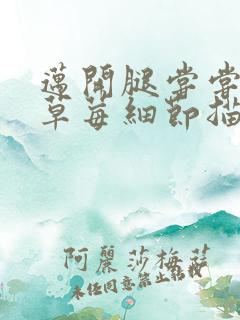 邁開腿嘗嘗
草莓細節描
阿麗莎梅菇
未经同意禁止转载